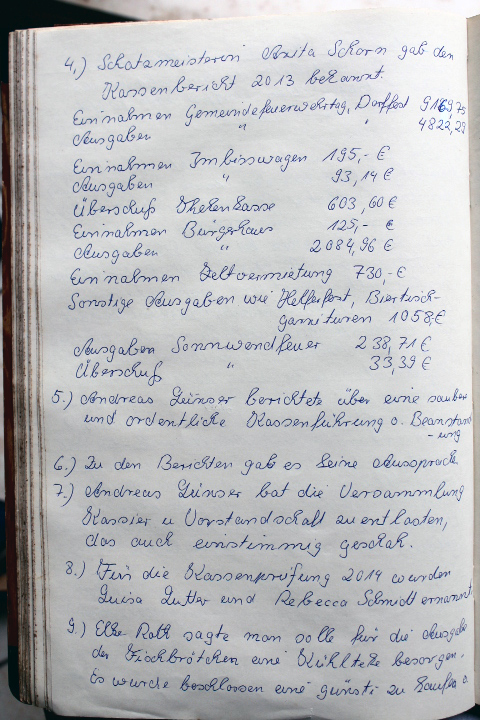 4.) Schatzmeisterin Anita Schorn gab den
Kassenbericht 2013 bekannt.
Einnahmen Gemeindefeuerwehrtag, Dorffest 9169,75
Ausgaben " " 4822,29
Einnahmen Imbisswagen 195,- €
Ausgaben " 93,14 €
Überschuß Thekenkasse 603,60 €
Einnahmen Bürgerhaus 125,- €
Ausgaben " 2084,96 €
Einnahmen Zeltvermietung 730,- €
Sonstige Ausgaben wie Helferfest, Biertisch-
garnituren 1058 €
Ausgaben Sonnwendfeuer 238,71 €
Überschuß " 33,39 €
5.) Andreas berichtete über eine sauber
und ordentliche Kassenführung o. Beanstand
-ung
6.) Zu den Berichten gab es keine Aussprache
7.) Andreas bat die Versammlung
Kassier u Vorstandschaft zu entlasten,
das auch einstimmig geschah.
8.) Für die Kassenprüfung 2014 wurden
Luisa und Rebecca Schmidt ernannt
9.) Elke Roth sagte man solle für die Ausgabe
der Fischbrötchen eine Kühltheke besorgen.
Es wurde beschlossen eine günsti zu kaufen o.